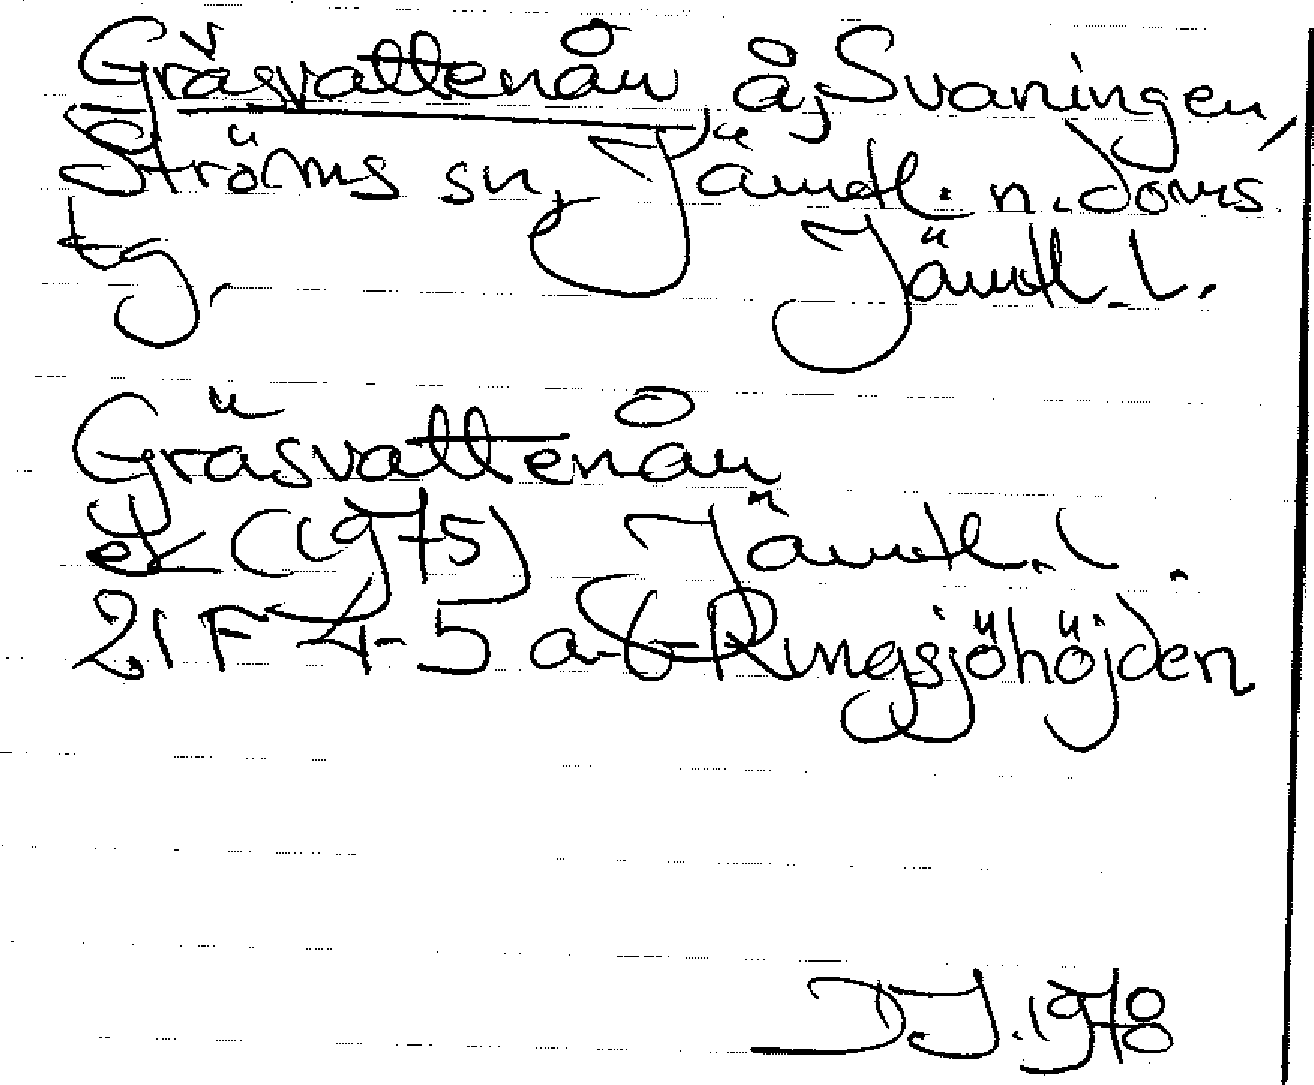 Gräsvattenån, å, Svaningen,
Ströms sn, Jämtl. n. doms
tg. Jämtl. l.
Gräsvattenån
ek (1975) Jämtl. l.
21 F 4-5 a-b Ringsjöhöjden
DJ. 1978